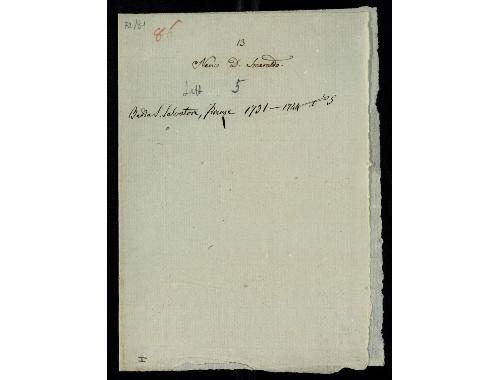 72/81
86
13
Nenci D. Smeraldo.
Lett 5
Badia S. Salvatore, Firenze 1731 — 1744 — 5
I